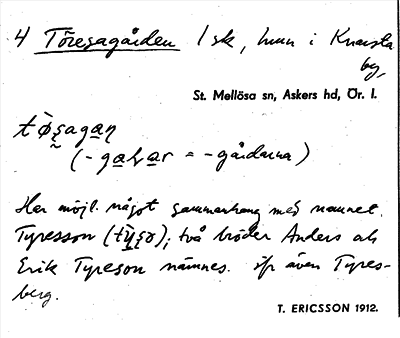 4 Töresagården 1 sk, hmn i Knavsta
by,
St. Mellösa sn, Askers hd, Ör. l.
tø̀ṣagạṇ
(-gạhạr = -gårdarna)
Har möjl. något sammanhang med namnet
Tyresson (tỳṣo); två bröder Anders och
Erik Tyreson nämnes. Jfr även Tyres-
berg.
T. ERICSSON 1912.